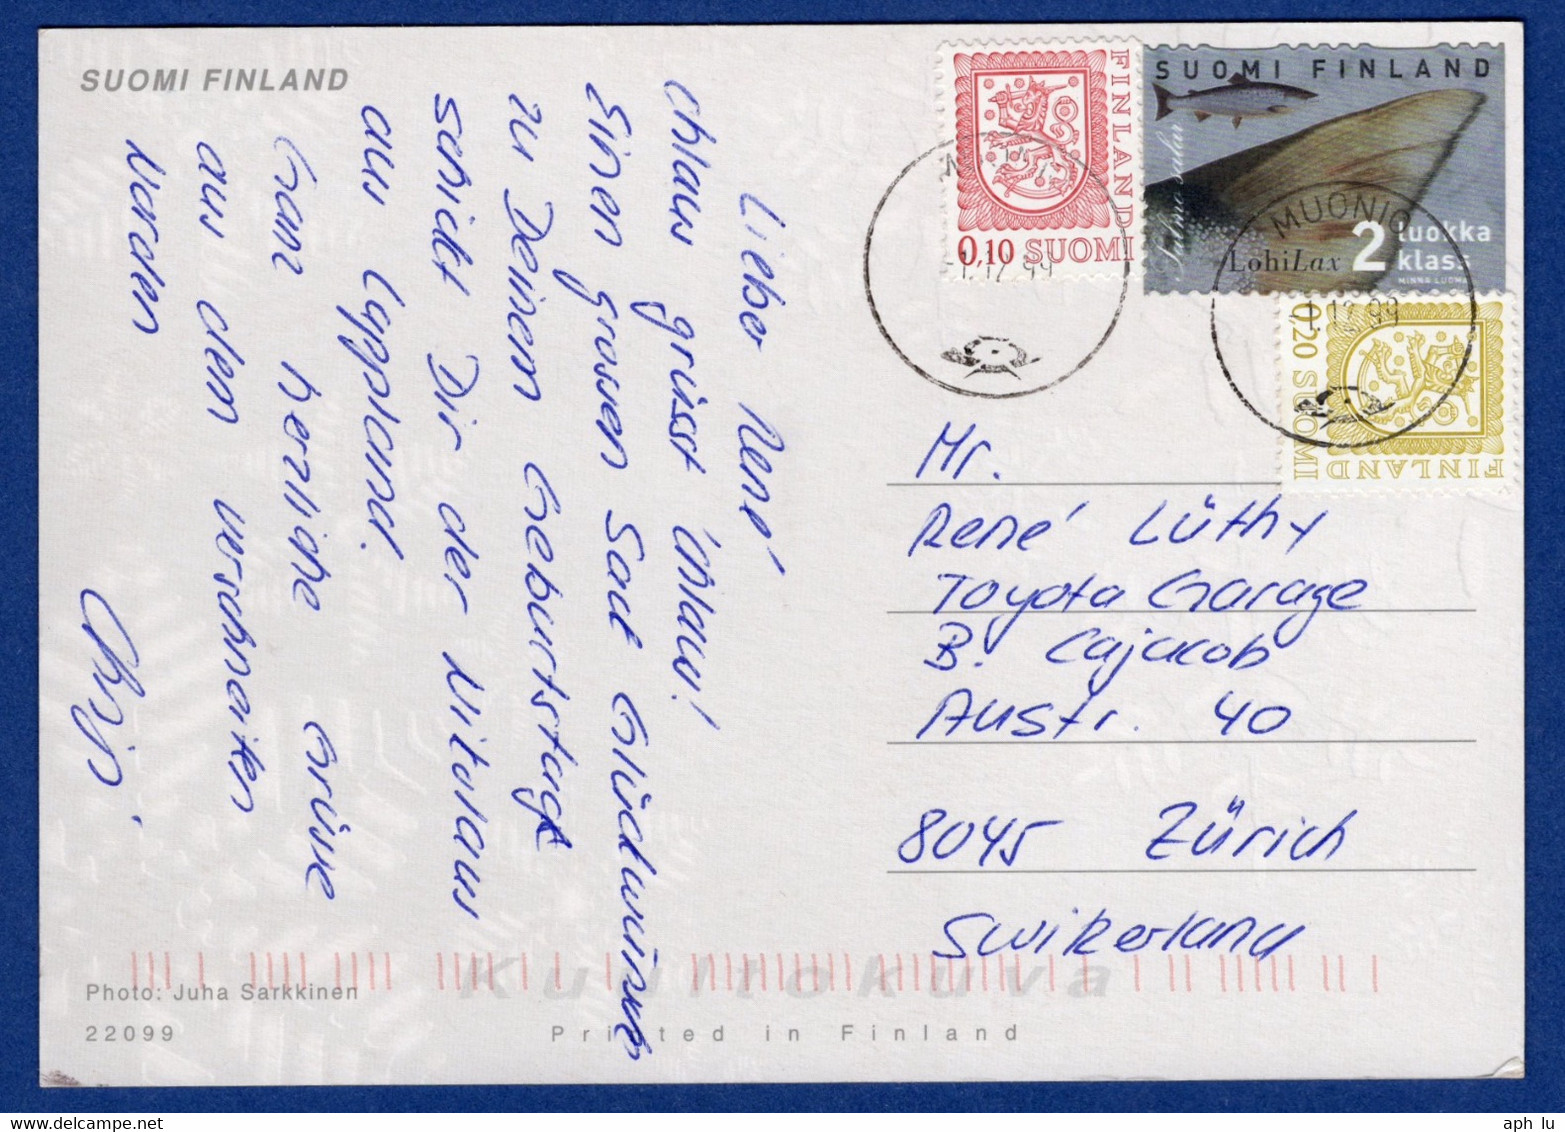 SUOMI FINLAND
Lieber René
chlaus grüsst Chlaus!
Einen grossen Sack Glückwünsche
zu Deinem Geburtstag
schickt Dir der Nikolaus
aus Lappland.
Ganz herzliche Grüsse
aus dem verschneiten
Norden
Photo: Juha Sarkkinen
22099
Kuultokuva
Printed in Finland
FINLAND
0,10 SUOMI
SUOMI FINLAND
Salmo salar
2 luokka
klass
LohiLax
MINNA LUOMA
MUONIO
-1.12.99
-1.12.99
0,20 SUOMI
FINLAND
Mr.
René Lüthy
Toyota Garage
B. Cajacob
Austr. 40
8045 Zürich
Switzerland
aph lu
www.delcampe.net